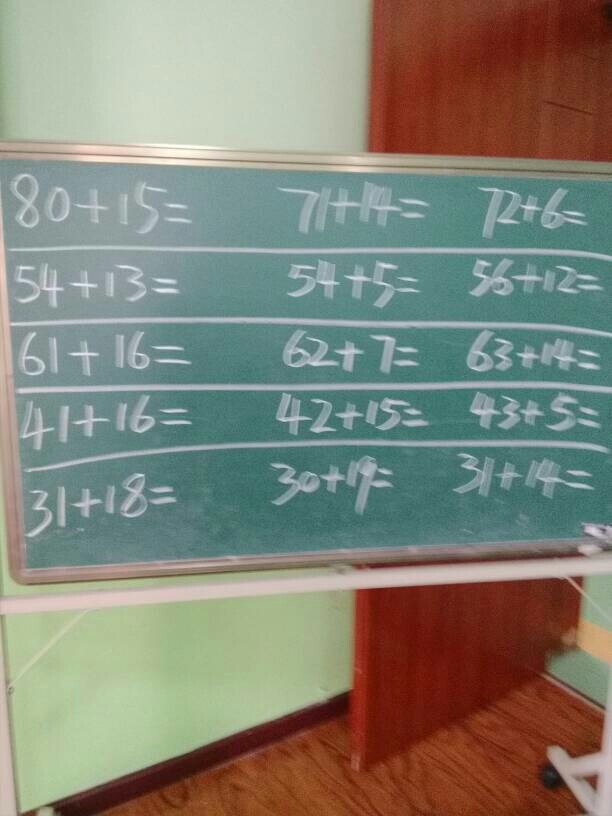 80+15= 71+14= 72+6=
54+13= 54+5= 56+12=
61+16= 62+7= 63+14=
41+16= 42+15= 43+5=
31+18= 30+19= 31+14=